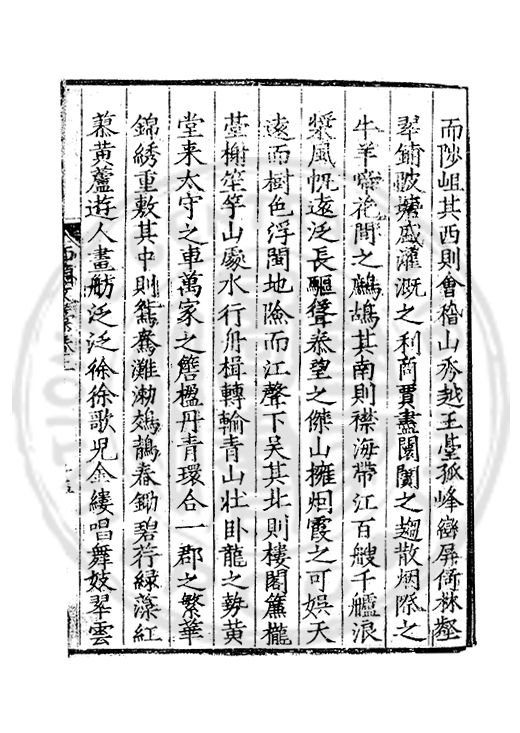 而陟岨其西則會稽山秀越王臺孤峰巒屏衛林壑
翠鋪陂塘盛灌溉之利商賈盡闤闠之趨散烟際之
牛羊啼花間之鷓鴣其南則襟海帶江百艘千艫浪
槳風帆遠泛長驅聳叅望之傑山擁烟霞之可娯天
遠而樹色浮閩地險而江聲下吴其北則樓閣簾櫳
臺榭笙竽山處水行舟楫轉輸青山壯卧龍之勢黄
堂来太守之車萬家之簷楹丹青環合一郡之繁華
錦綉重敷其中則鴛鴦灘㶀鵁鶄春鋤碧荇緑藻紅
蓼黄蘆遊人畫舫泛泛徐徐歌兒金縷唱舞妓翠雲
卷之
十五